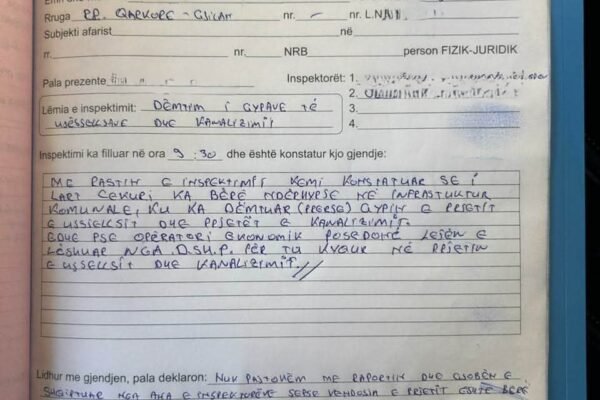 Rruga RR. QARKORE - GJILAN nr. - nr. L.N
Subjekti afarist në
rr. nr. NRB person FIZIK-JURIDIK
Pala prezente Inspektorët: 1.
2.
Lëmia e inspektimit: DËMTIM I GYPAVE TË 3.
UJËSJELLSAVE DHE KANALIZIMIT 4.
Inspektimi ka filluar në ora 9:30 dhe është konstatur kjo gjendje:
ME RASTIN E INSPEKTIMIT KEMI KONSTATUAR SE I
LART CEKURI KA BËRË NDËRHYRJE NË INFRASTUKTUR
KOMUNALE, KU KA DËMTUAR (PRERSE) GYPIN E RRJETIT
E UJSJELLSIT DHE RRJETËT E KANALIZIMIT.
EDHE PSE OPERATORI EKONOMIK POSEDONË LEJEN E
LËSHUAR NGA D.SH.P. PËR TU KYQUR NË RRJETIN
E UJSJELLSIT DHE KANALIZIMIT.
Lidhur me gjendjen, pala deklaron: NUK PAJTOHEM ME RAPORTIN DHE GJOBËN E
SHQIPTUAR NGA ANA E INSPEKTORËVE SEPSE VENDOSJA E RRJETIT ËSHTË BËRË